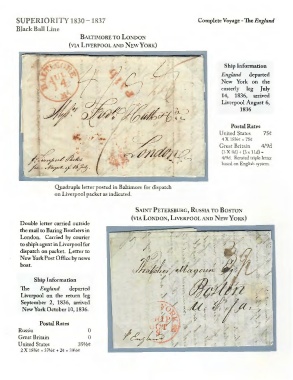 SUPERIORITY 1830 – 1837
Black Ball Line
Complete Voyage - The England
BALTIMORE TO LONDON
(VIA LIVERPOOL AND NEW YORK)
PAID
London
Ship Information
England departed
New York on the
easterly leg July
16, 1836, arrived
Liverpool August 6,
1836
Postal Rates
United States 75¢
4 X 18¾¢ = 75¢
Great Britain 4/9d
Quadruple letter posted in Baltimore for dispatch
on Liverpool packet as indicated.
Double letter carried outside
the mail to Baring Brothers in
London. Carried by courier
to ship's agent in Liverpool for
dispatch on packet. Letter to
New York Post Office by news
boat.
Ship Information
The England departed
Liverpool on the return leg
September 2, 1836, arrived
New York October 10, 1836.
Postal Rates
Russia 0
Great Britain 0
United States 39½¢
2 X 18¾¢ = 37½¢ + 2¢ = 39½¢
SAINT PETERSBURG, RUSSIA TO BOSTON
(VIA LONDON, LIVERPOOL AND NEW YORK)
Boston
U. S. A.
p England